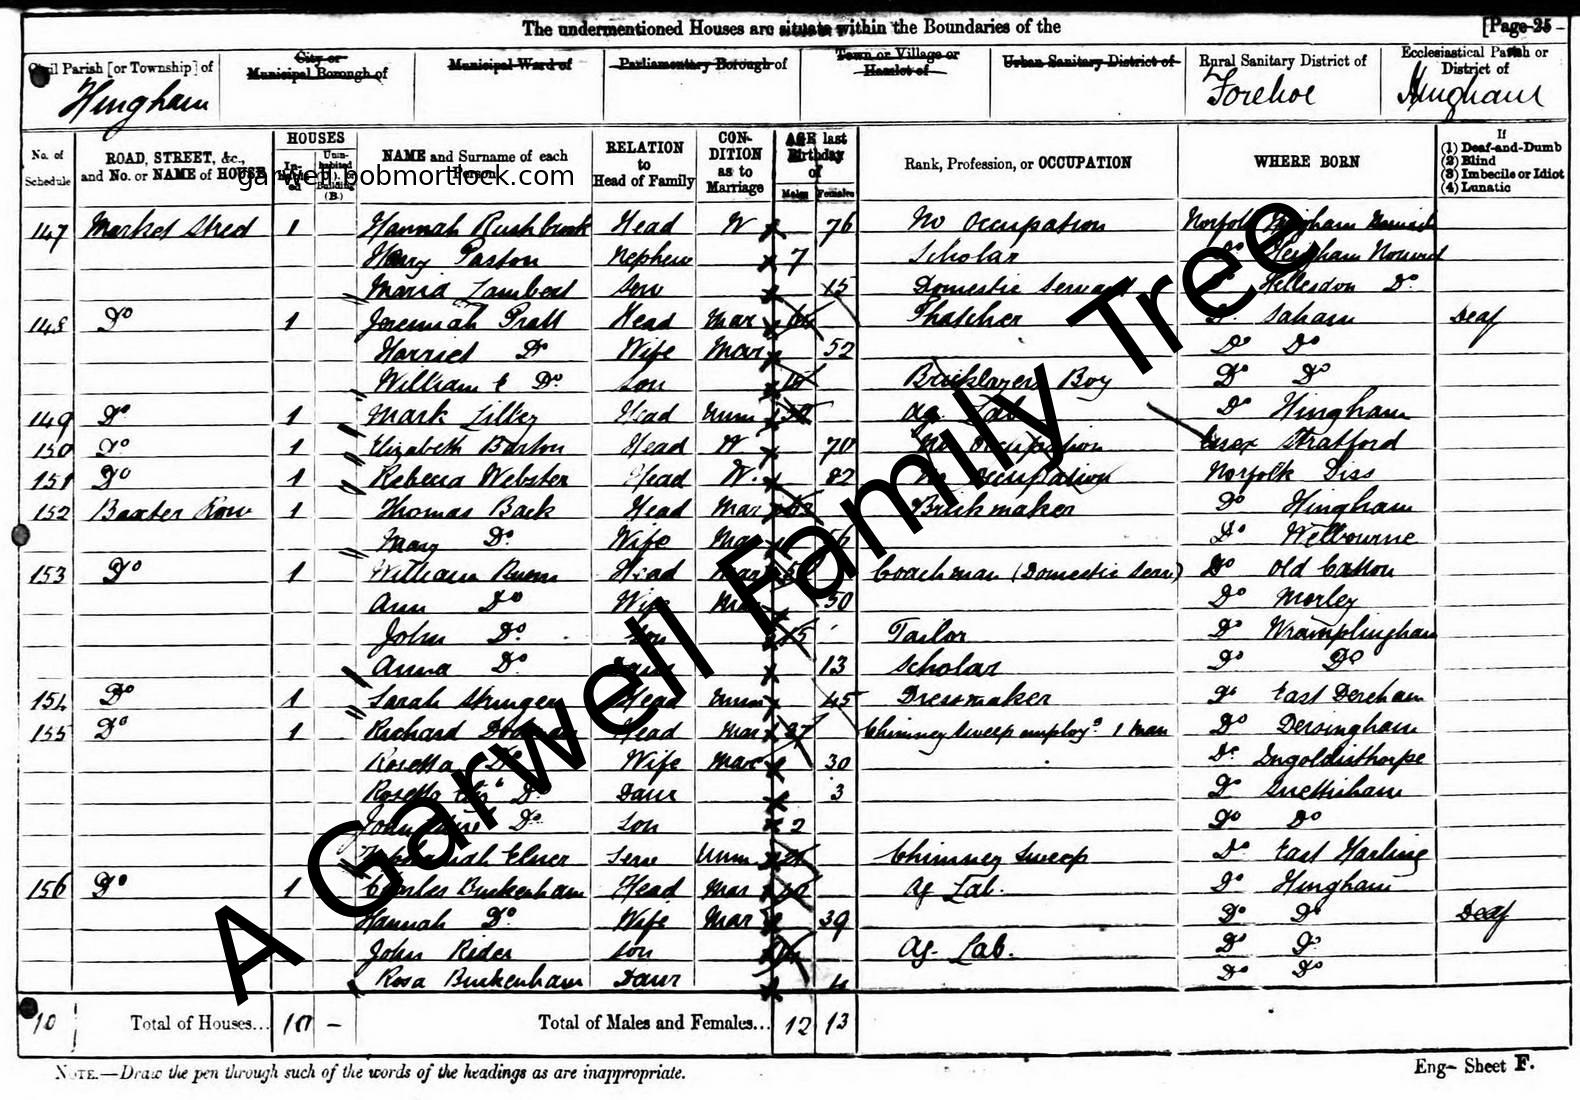 The undermentioned Houses are situate within the Boundaries of the [Page 25
Civil Parish [or Township] of City or Municipal Borough of Municipal Ward of Parliamentary Borough of Town or Village or Hamlet of Urban Sanitary District of Rural Sanitary District of Ecclesiastical Parish or District of
Hingham Forehoe Hingham
No. of Schedule ROAD, STREET, &c., and No. or NAME of HOUSE HOUSES Inhabited Uninhabited (U.), or Building (B.) NAME and Surname of each Person RELATION to Head of Family CONDITION as to Marriage AGE last Birthday of Males Females Rank, Profession, or OCCUPATION WHERE BORN If (1) Deaf-and-Dumb (2) Blind (3) Imbecile or Idiot (4) Lunatic
garwell.bobmortlock.com
147 Market Street 1 Hannah Rushbrook Head W 76 No Occupation Norfolk
Paston Nephew 7 Scholar Do Heigham Norwich
Maria Lambert Serv 15 Domestic Servant Hellesdon Do
148 Do 1 Jeremiah Pratt Head Mar Thatcher Do Saham Deaf
Harriet Do Wife Mar 52 Do Do
William E Do Son Bricklayers Boy Do Do
149 Do 1 Mark Lilley Head Unm Ag. Lab Do Hingham
150 Do 1 Elizabeth Barton Head W 70 No Occupation Essex Stratford
151 Do 1 Rebecca Webster Head W. 82 No Occupation Norfolk Diss
152 Baxter Row 1 Thomas Back Head Mar Brickmaker Do Hingham
Mary Do Wife Mar Do Welbourne
153 Do 1 William Head Mar Coachman (Domestic Serv) Do Old Catton
Ann Do Wife Mar 50 Do Morley
John Do Son 15 Tailor Do Wramplingham
Anna Do Daur 13 Scholar Do Do
154 Do 1 Sarah Stringer Head Unm 45 Dressmaker Do East Dereham
155 Do 1 Richard Head Mar 37 Chimney Sweep employg 1 Man Do Dersingham
Rosetta Do Wife Mar 30 Do Ingoldisthorpe
Rosetta Do Daur 3 Do Snettisham
John Do Son 2 Do Do
Serv Unm Chimney Sweep Do East Harling
156 Do 1 Charles Buckenham Head Mar Ag Lab. Do Hingham
Hannah Do Wife Mar 39 Do Do Deaf
John Rider Son Ag. Lab. Do Do
Rosa Buckenham Daur 4 Do Do
10 Total of Houses... 10 – Total of Males and Females... 12 13
NOTE.—Draw the pen through such of the words of the headings as are inappropriate.
Eng– Sheet F.
A Garwell Family Tree